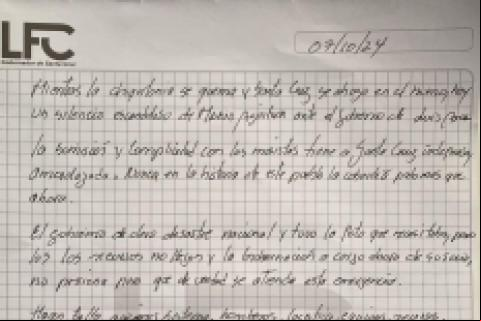 LFC
07/10/24
Mientras la chiquitania se quema y Santa Cruz se ahoga en el humo, hay
un silencio escandaloso de ante el gobierno de Luis
la sumisión y complicidad con los masistas tiene a Santa Cruz indefensa y
arrodillada. Nunca en la historia de este pueblo la cobardía pudo más que
ahora.
El gobierno declara desastre nacional y tuvo la foto que necesitaba, pero
los recursos no llegan y la Gobernación a cargo ahora de su socio,
no presiona para que de verdad se atienda esta emergencia.
Hacen falta bomberos,